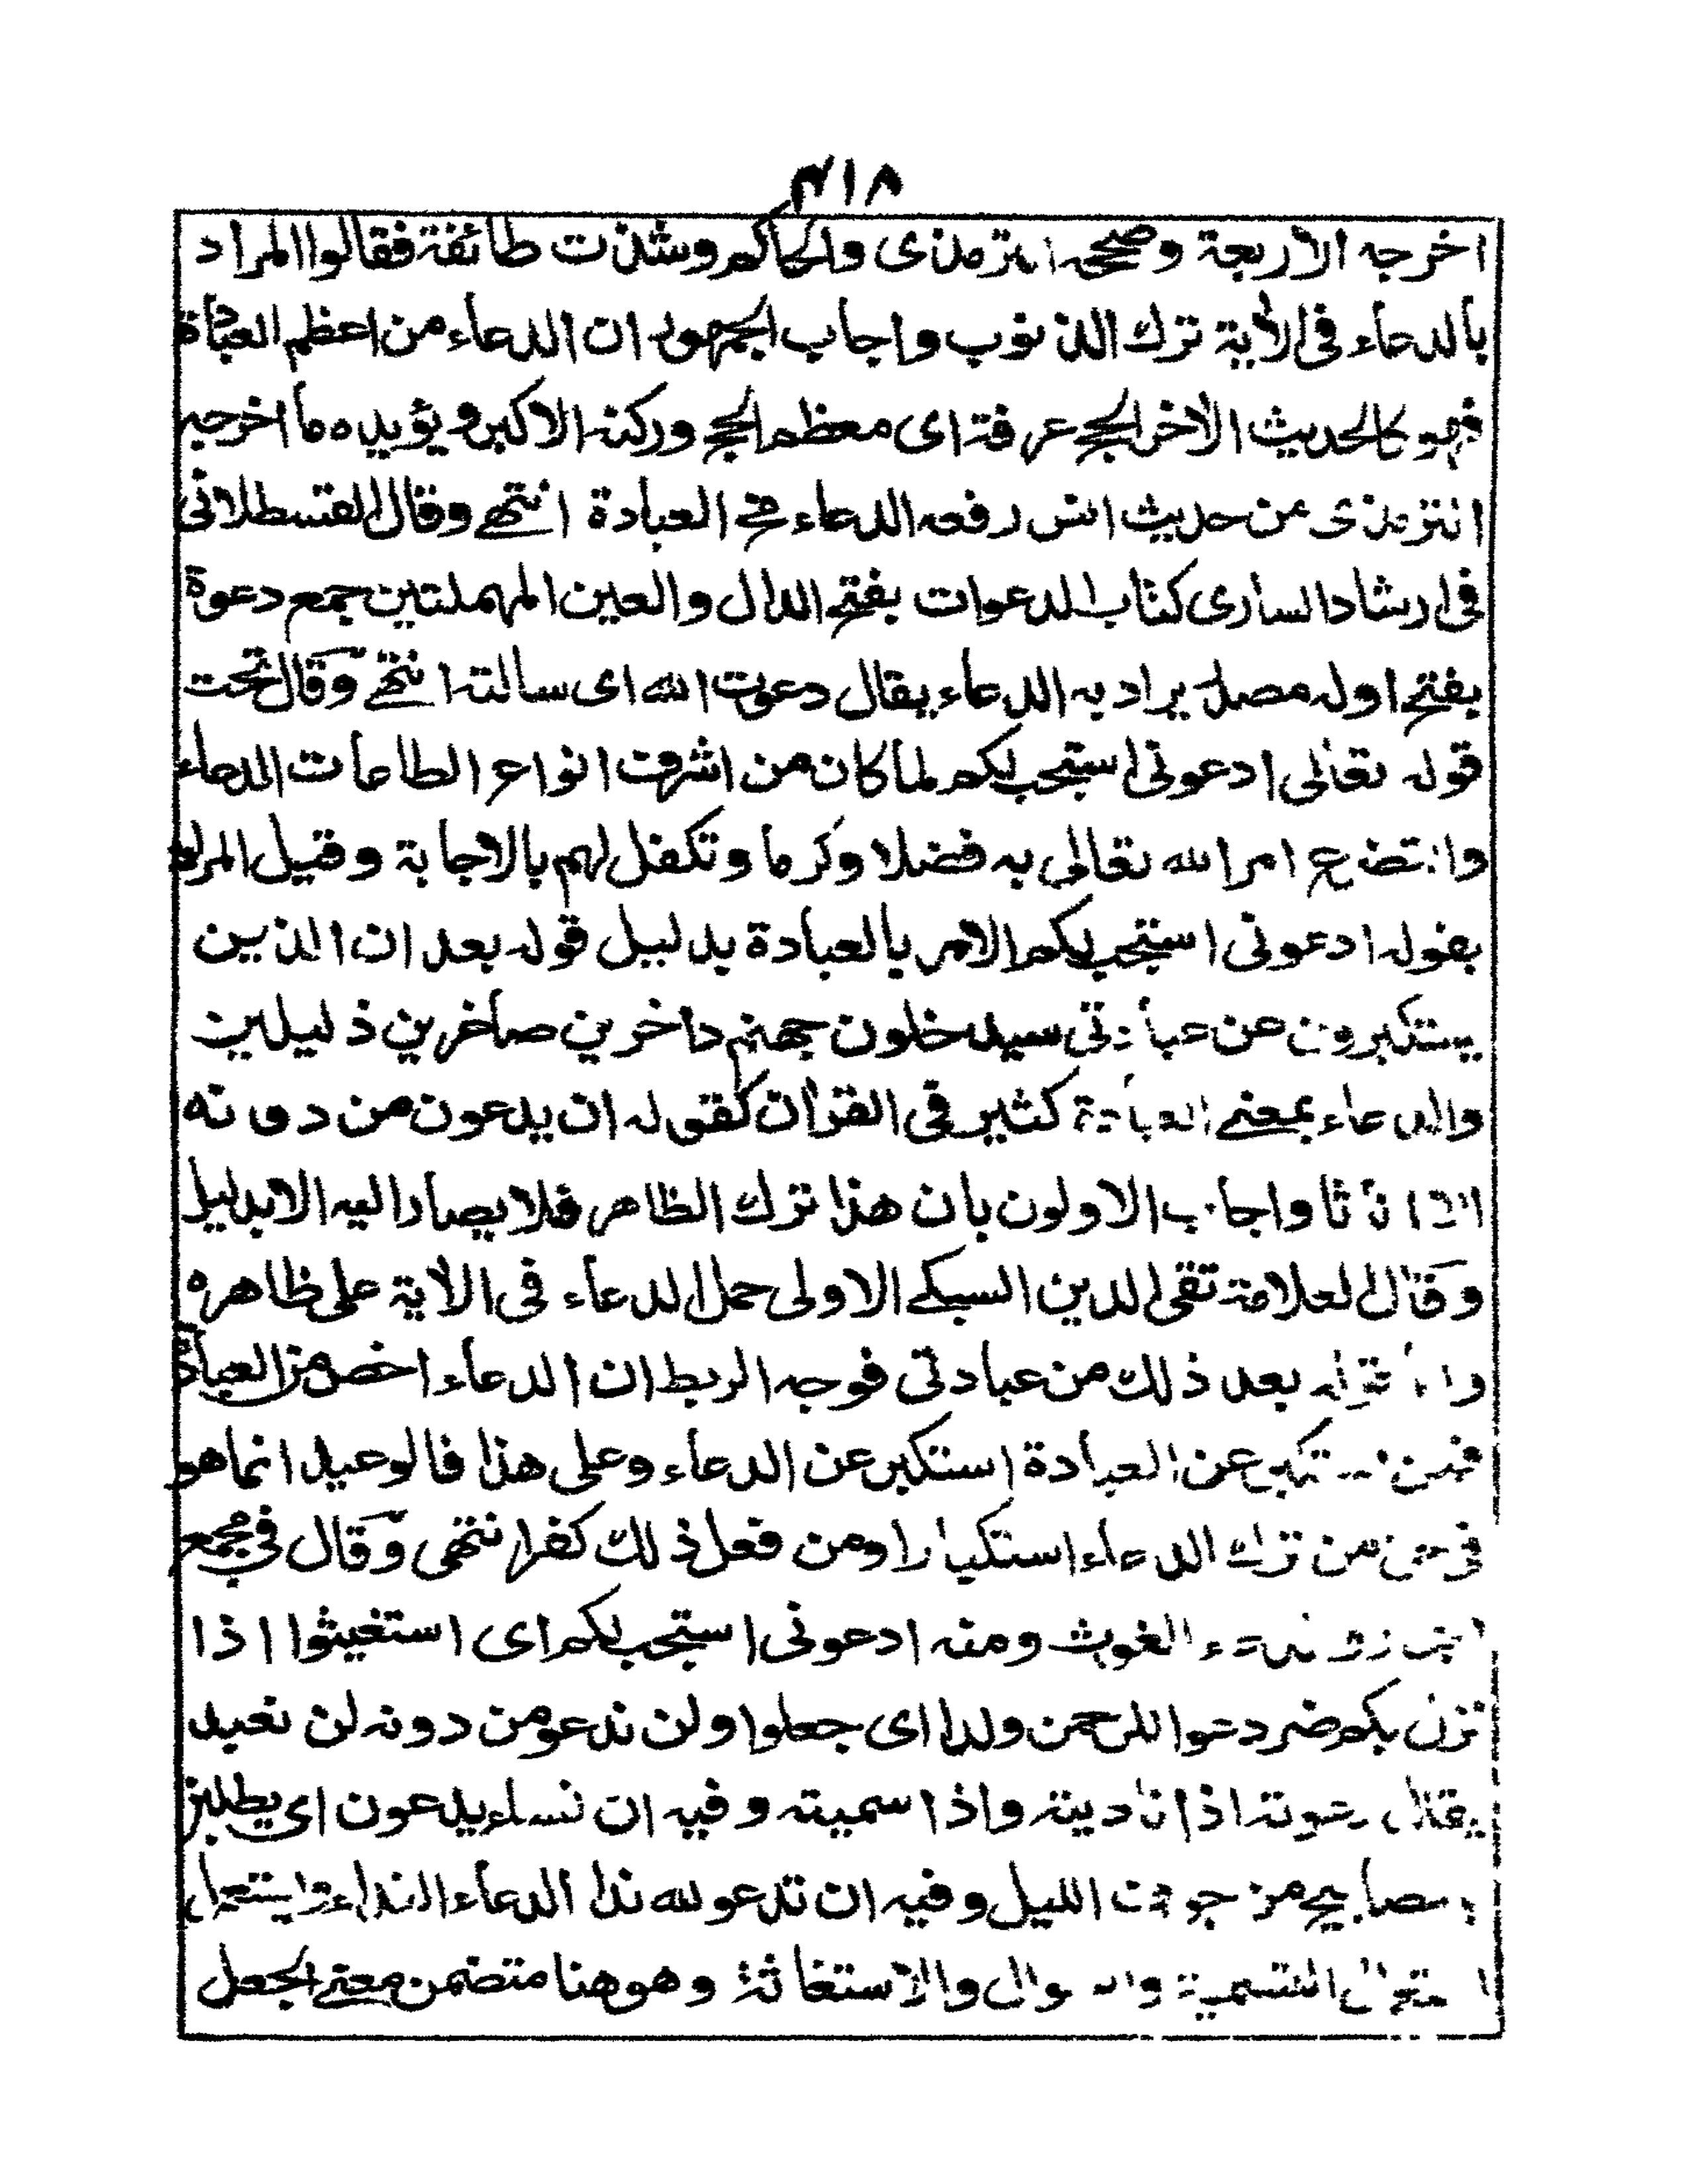 ۴۱۸
اخرجه الاربعة وصححه الترمذى والحاكم وشذت طائفة فقالوا المراد
بالدعاء فى الأية ترك الذنوب واجاب الجمهور ان الدعاء من اعظم العبادة
فهو كالحديث الأخر الحج عرفة اى معظم الحج وركنه الاكبر ويؤيده ما اخرجه
الترمذى من حديث انس رفعه الدعاء مخ العبادة انتهى وقال القسطلانى
فى ارشاد السارى كتاب الدعوات بفتح الدال والعين المهملتين جمع دعوة
بفتح اوله مصدر يراد به الدعاء يقال دعوت الله اى سالته انتهى وقال تحت
قوله تعالى ادعونى استجب لكم لما كان من اشرف انواع الطاعات الدعاء
والتضرع امر الله تعالى به فضلا وكرما وتكفل لهم بالاجابة وقيل المراد
بقوله ادعونى استجب لكم الامر بالعبادة بدليل قوله بعد ان الذين
يستكبرون عن عبادتى سيدخلون جهنم داخرين صاغرين ذليلين
والدعاء بمعنى العبادة كثير فى القرأن كقوله ان يدعون من دونه
الا اناثا واجاب الاولون بان هذا ترك الظاهر فلا يصار اليه الا بدليل
وقال العلامة تقى الدين السبكى الاولى حمل الدعاء فى الأية على ظاهره
واما قوله بعد ذلك من عبادتى فوجه الربط ان الدعاء اخص من العبادة
فمن استكبر عن العبادة استكبر عن الدعاء وعلى هذا فالوعيد انما هو
فى حق من ترك الدعاء استكبارا ومن فعل ذلك كفر انتهى وقال فى مجمع
الغوث ومنه ادعونى استجب لكم اى استغيثوا اذا
نزل بكم ضر دعوا للرحمن ولدا اى جعلوا ولن ندعو من دونه لن نعبد
يقال دعوته اذا ناديته واذا سميته وفيه ان نساء يدعون اى يطلبن
بمصابيح من جوف الليل وفيه ان تدعو لله ندا الدعاء النداء ويستعمل
استعمال التسمية والسوال والاستغاثة وهو هنا متضمن معنى الجعل